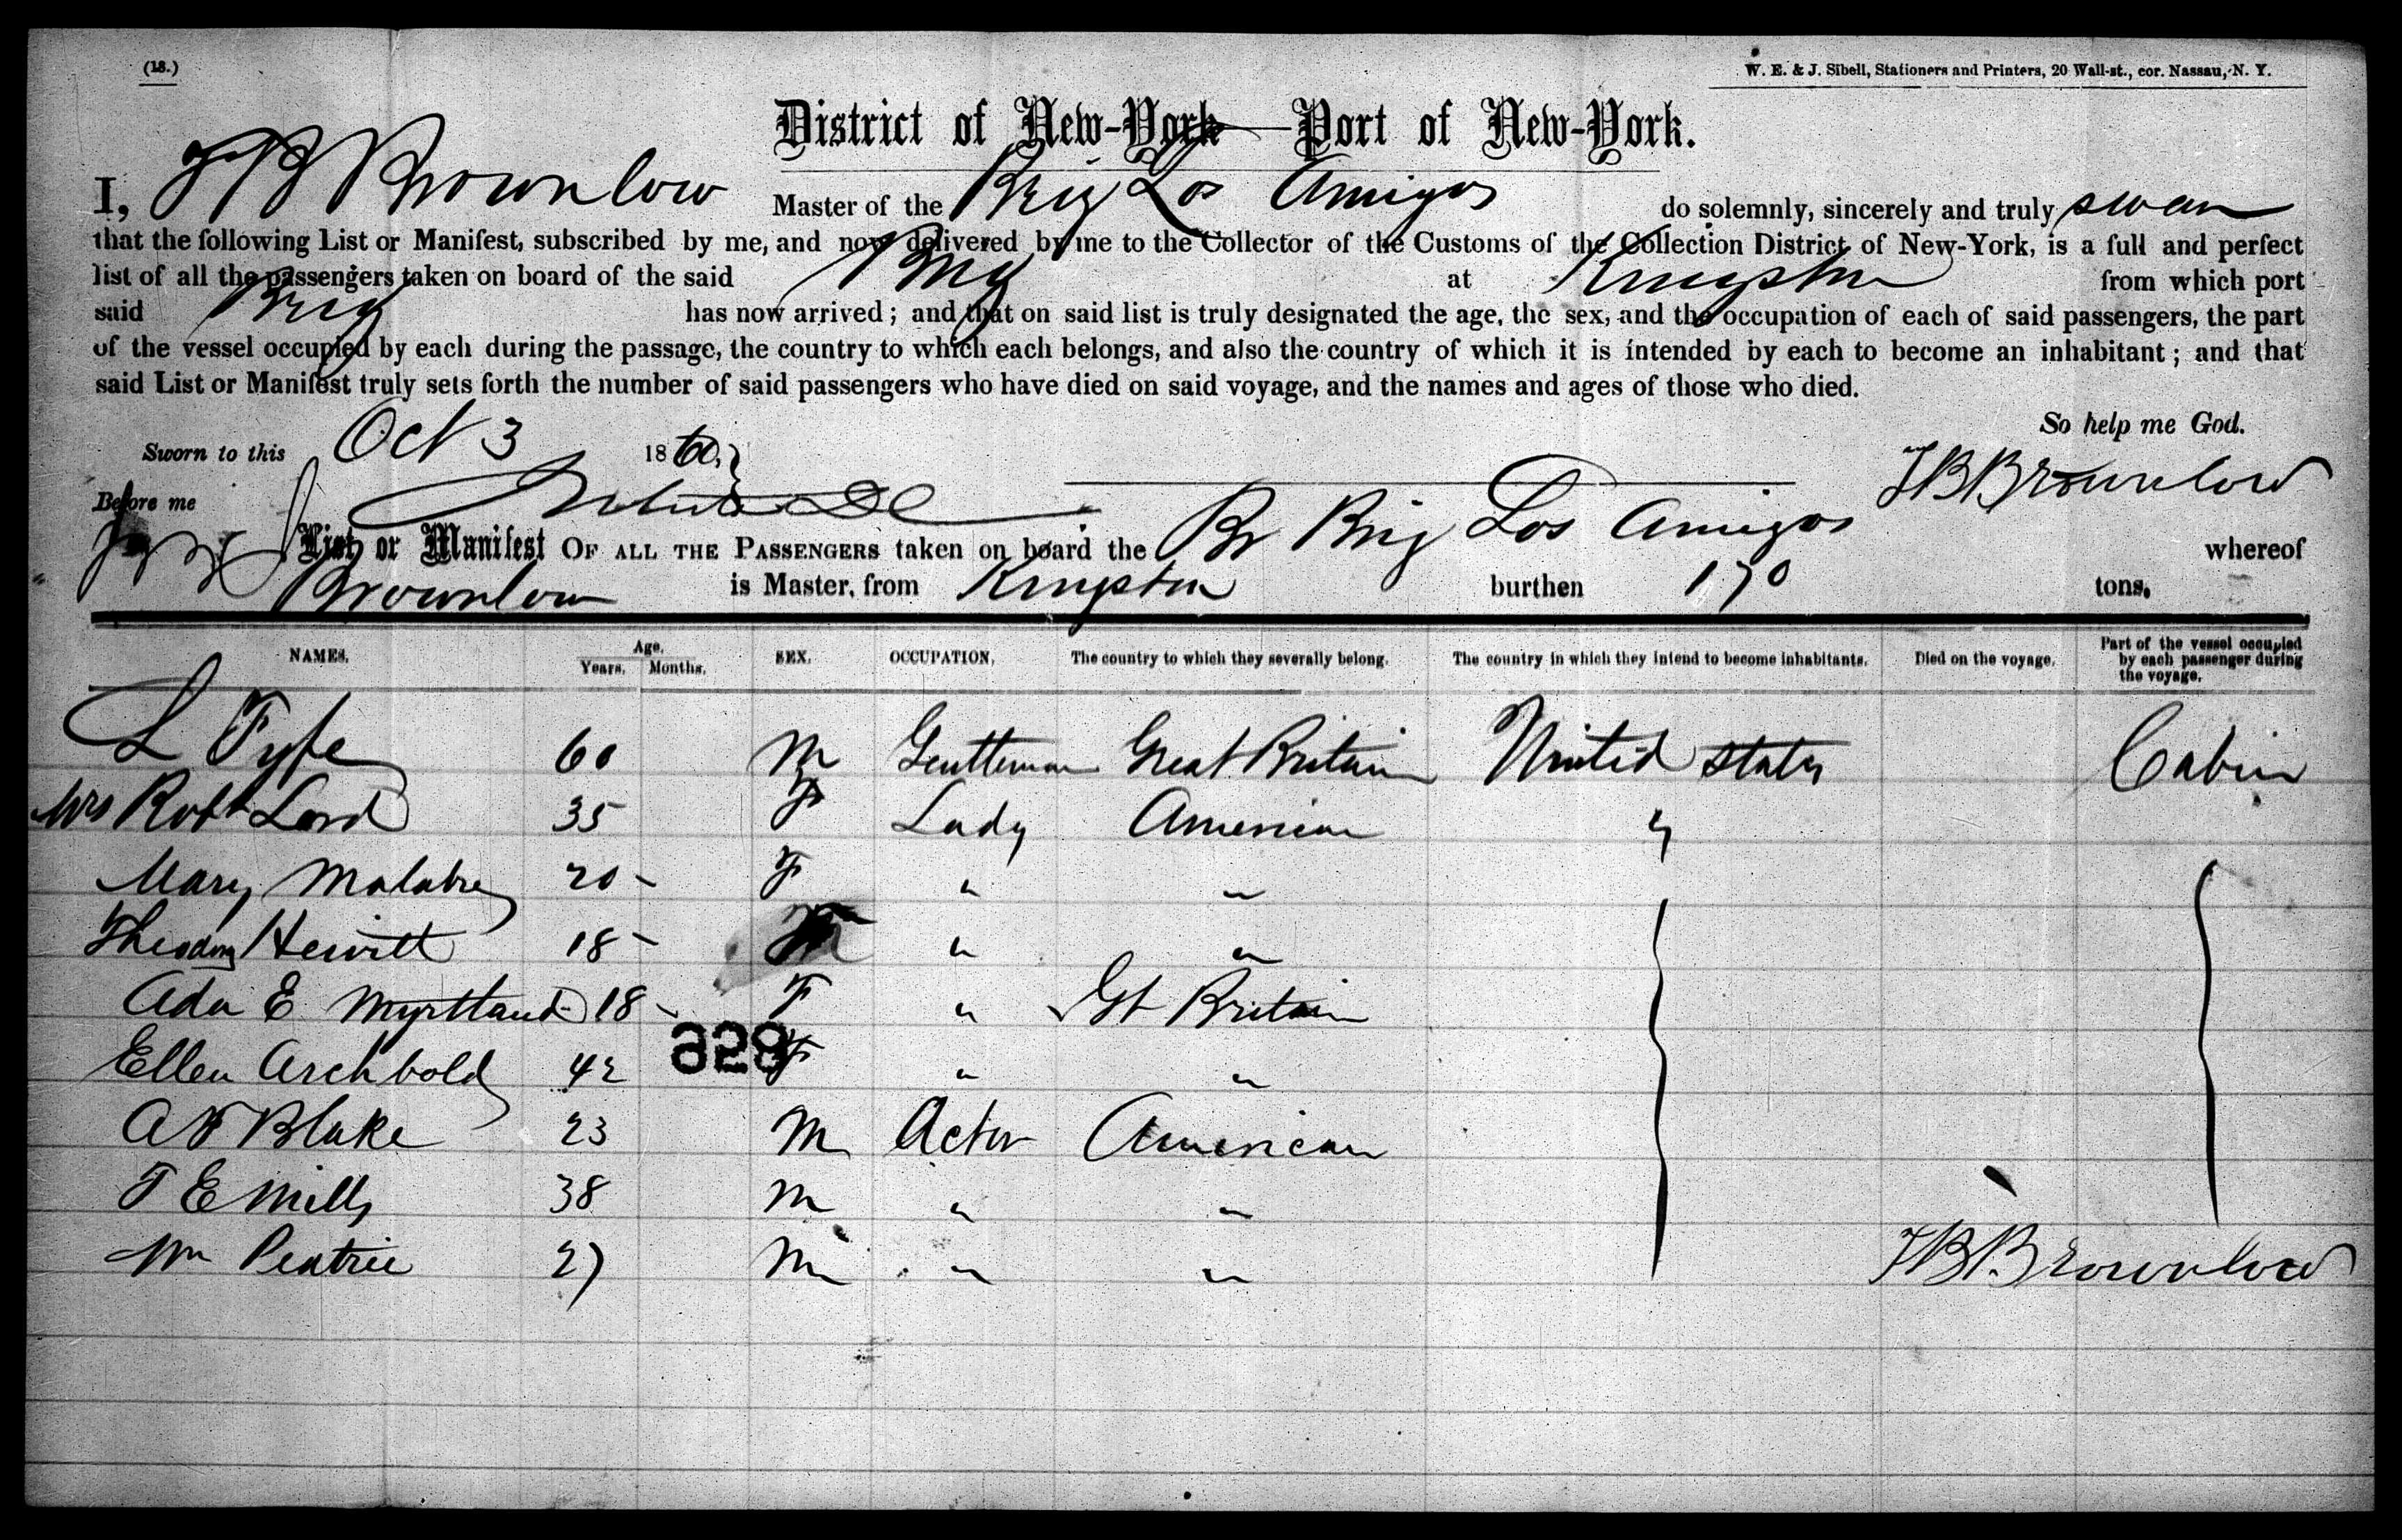 (18.)
W. E. & J. Sibell, Stationers and Printers, 20 Wall-st., cor. Nassau, N. Y.
District of New-York—Port of New-York.
I, J B Brownlow Master of the Brig Los Amigos do solemnly, sincerely and truly swear
that the following List or Manifest, subscribed by me, and now delivered by me to the Collector of the Customs of the Collection District of New-York, is a full and perfect
list of all the passengers taken on board of the said Brig at Kingston from which port
said Brig has now arrived; and that on said list is truly designated the age, the sex, and the occupation of each of said passengers, the part
of the vessel occupied by each during the passage, the country to which each belongs, and also the country of which it is intended by each to become an inhabitant; and that
said List or Manifest truly sets forth the number of said passengers who have died on said voyage, and the names and ages of those who died.
So help me God.
Sworn to this Oct 3 1860,
J B Brownlow
Before me
List or Manifest OF ALL THE PASSENGERS taken on board the Br Brig Los Amigos whereof
Brownlow is Master, from Kingston burthen 170 tons.
NAMES. Age. Years. Months. SEX. OCCUPATION, The country to which they severally belong. The country in which they intend to become inhabitants. Died on the voyage. Part of the vessel occupied by each passenger during the voyage.
L Fyfe 60 M Gentleman Great Britain United States Cabin
Mrs Robt Lord 35 F Lady American "
Mary 20 F " "
Hewitt 18 " "
Ada E Myrttand 18 F " Gt Britain
829
Ellen Archbold 42 F " "
A F Blake 23 M Actor American
T E Mills 38 M " "
Wm 27 M " "
J B Brownlow